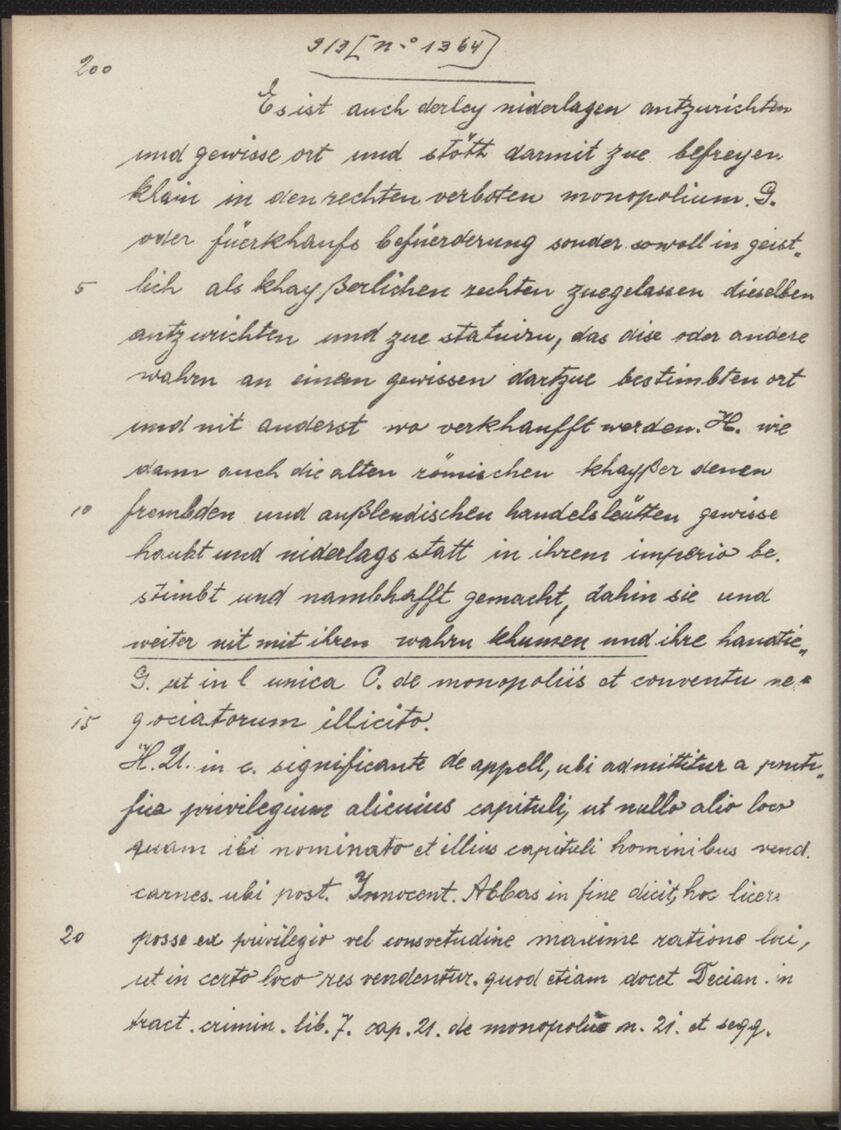 313 [n.o 1364]
200
Es ist auch derley niderlagen antzurichten
und gewisse ort und stött darmit zue befreyen
khain in den rechten verboten monopolium. G.
oder füerkhaufs befüerderung sonder sowoll in geist„
5 lich als khayßerlichen rechten zuegelassen dieselben
antzurichten und zue statuirn, das dise oder andere
wahrn an einem gewissen dartzue bestimbten ort
und nit anderst wo verkhaufft werden. H. wie
dann auch die alten römischen khayßer denen
10 frembden und außlendischen handelsleütten gewisse
haubt und niderlags statt in ihrem imperio be.
stimbt und nambhafft gemacht, dahin sie und
weiter nit mit ihren wahrn khumen und ihre handtie„
G. ut in l unica C. de monopoliis et conventu ne„
15 gociatorum illicito.
H. 21. in c. significante de appell, ubi admittitur a ponti„
fice privilegium alicuius capituli, ut nullo alio loco
quam ibi nominato et illius capituli hominibus vend.
carnes. ubi post. Innocent. Abbas in fine dicit, hoc licere
20 posse ex privilegio vel consvetudine maxime ratione loci,
ut in certo loco res vendentur. quod etiam docet Decian. in
tract. crimin. lib. 7. cap. 21. de monopolio n. 21. et segg.